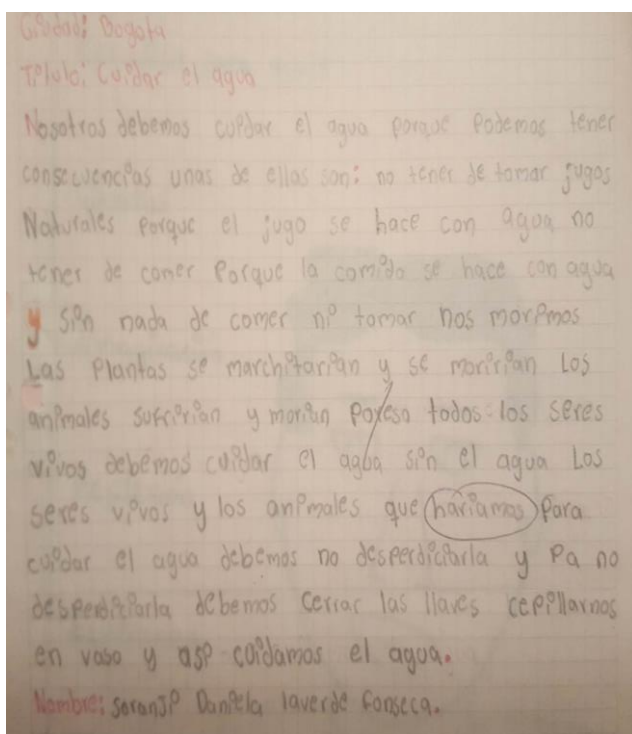 Ciudad: Bogota
Titulo: Cuidar el agua
Nosotros debemos cuidar el agua porque Podemos tener
consecuencias unas de ellas son: no tener de tomar jugos
Naturales Porque el jugo se hace con agua no
tener de comer Porque la comida se hace con agua
y sin nada de comer ni tomar nos morimos
Las Plantas se marchitarian y se moririan Los
animales sufririan y morian Por eso todos los seres
vivos debemos cuidar el agua sin el agua Los
seres vivos y los animales que hariamos Para
cuidar el agua debemos no desperdiciarla y Pa no
desperdiciarla debemos cerrar las llaves cepillarnos
en vaso y asi cuidamos el agua.
Nombre: Soranji Daniela laverde fonseca.